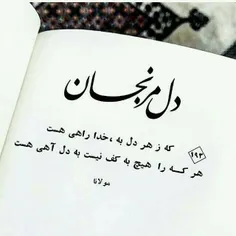 دل مرنجان
که ز هر دل به ،خدا راهی هست
۶۹۳
هر کسه را هیچ به کف نیست به دل آهی هست
مولانا